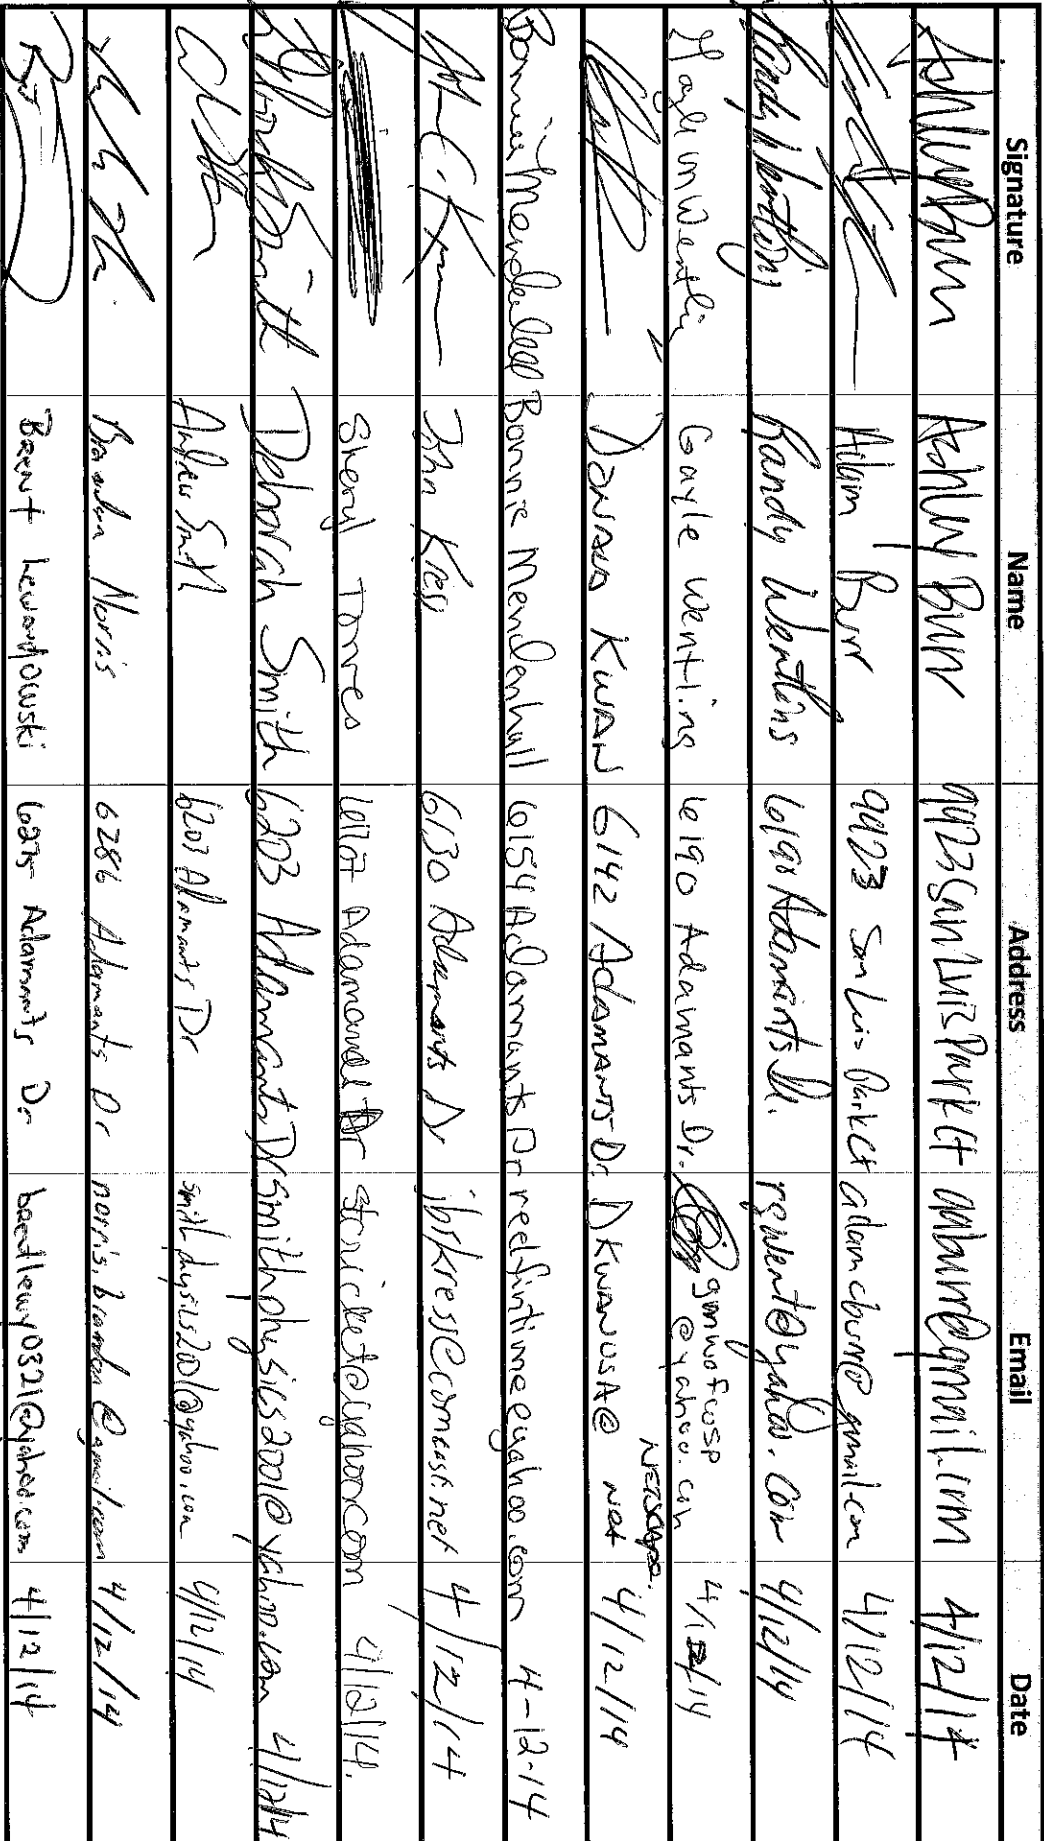 Signature Name Address Email Date
Ashley Burr Ashley Burr 9923 San Luis Park Ct @gmail.com 4/12/14
Adam Burr 9923 San Luis Park Ct adamcburr@gmail.com 4/12/14
Randy Wentling Randy Wentling 6190 Adamants Dr. rgwent@yahoo.com 4/12/14
Gayle Wentling 6190 Adamants Dr. gmwofcosp @yahoo.com 4/12/14
Donald Kwan 6142 Adamants Dr. DKWANUSA@ NETSCAPE. NET 4/12/14
Bonnie Mendenhall Bonnie Mendenhall 6154 Adamants Dr reefintime@yahoo.com 4-12-14
John Kress 6130 Adamants Dr jbskress@comcast.net 4/12/14
Sheryl Torres Adamants Dr 4/12/14.
Deborah Smith Deborah Smith 6203 Adamants Dr smithphysics2001@yahoo.com 4/12/14
Andrew Smith 6203 Adamants Dr smithphysics2001@yahoo.com 4/12/14
Brandon Norris 6286 Adamants Dr norris.brandon@gmail.com 4/12/14
Brent Lewandowski 6275 Adamants Dr 4/12/14